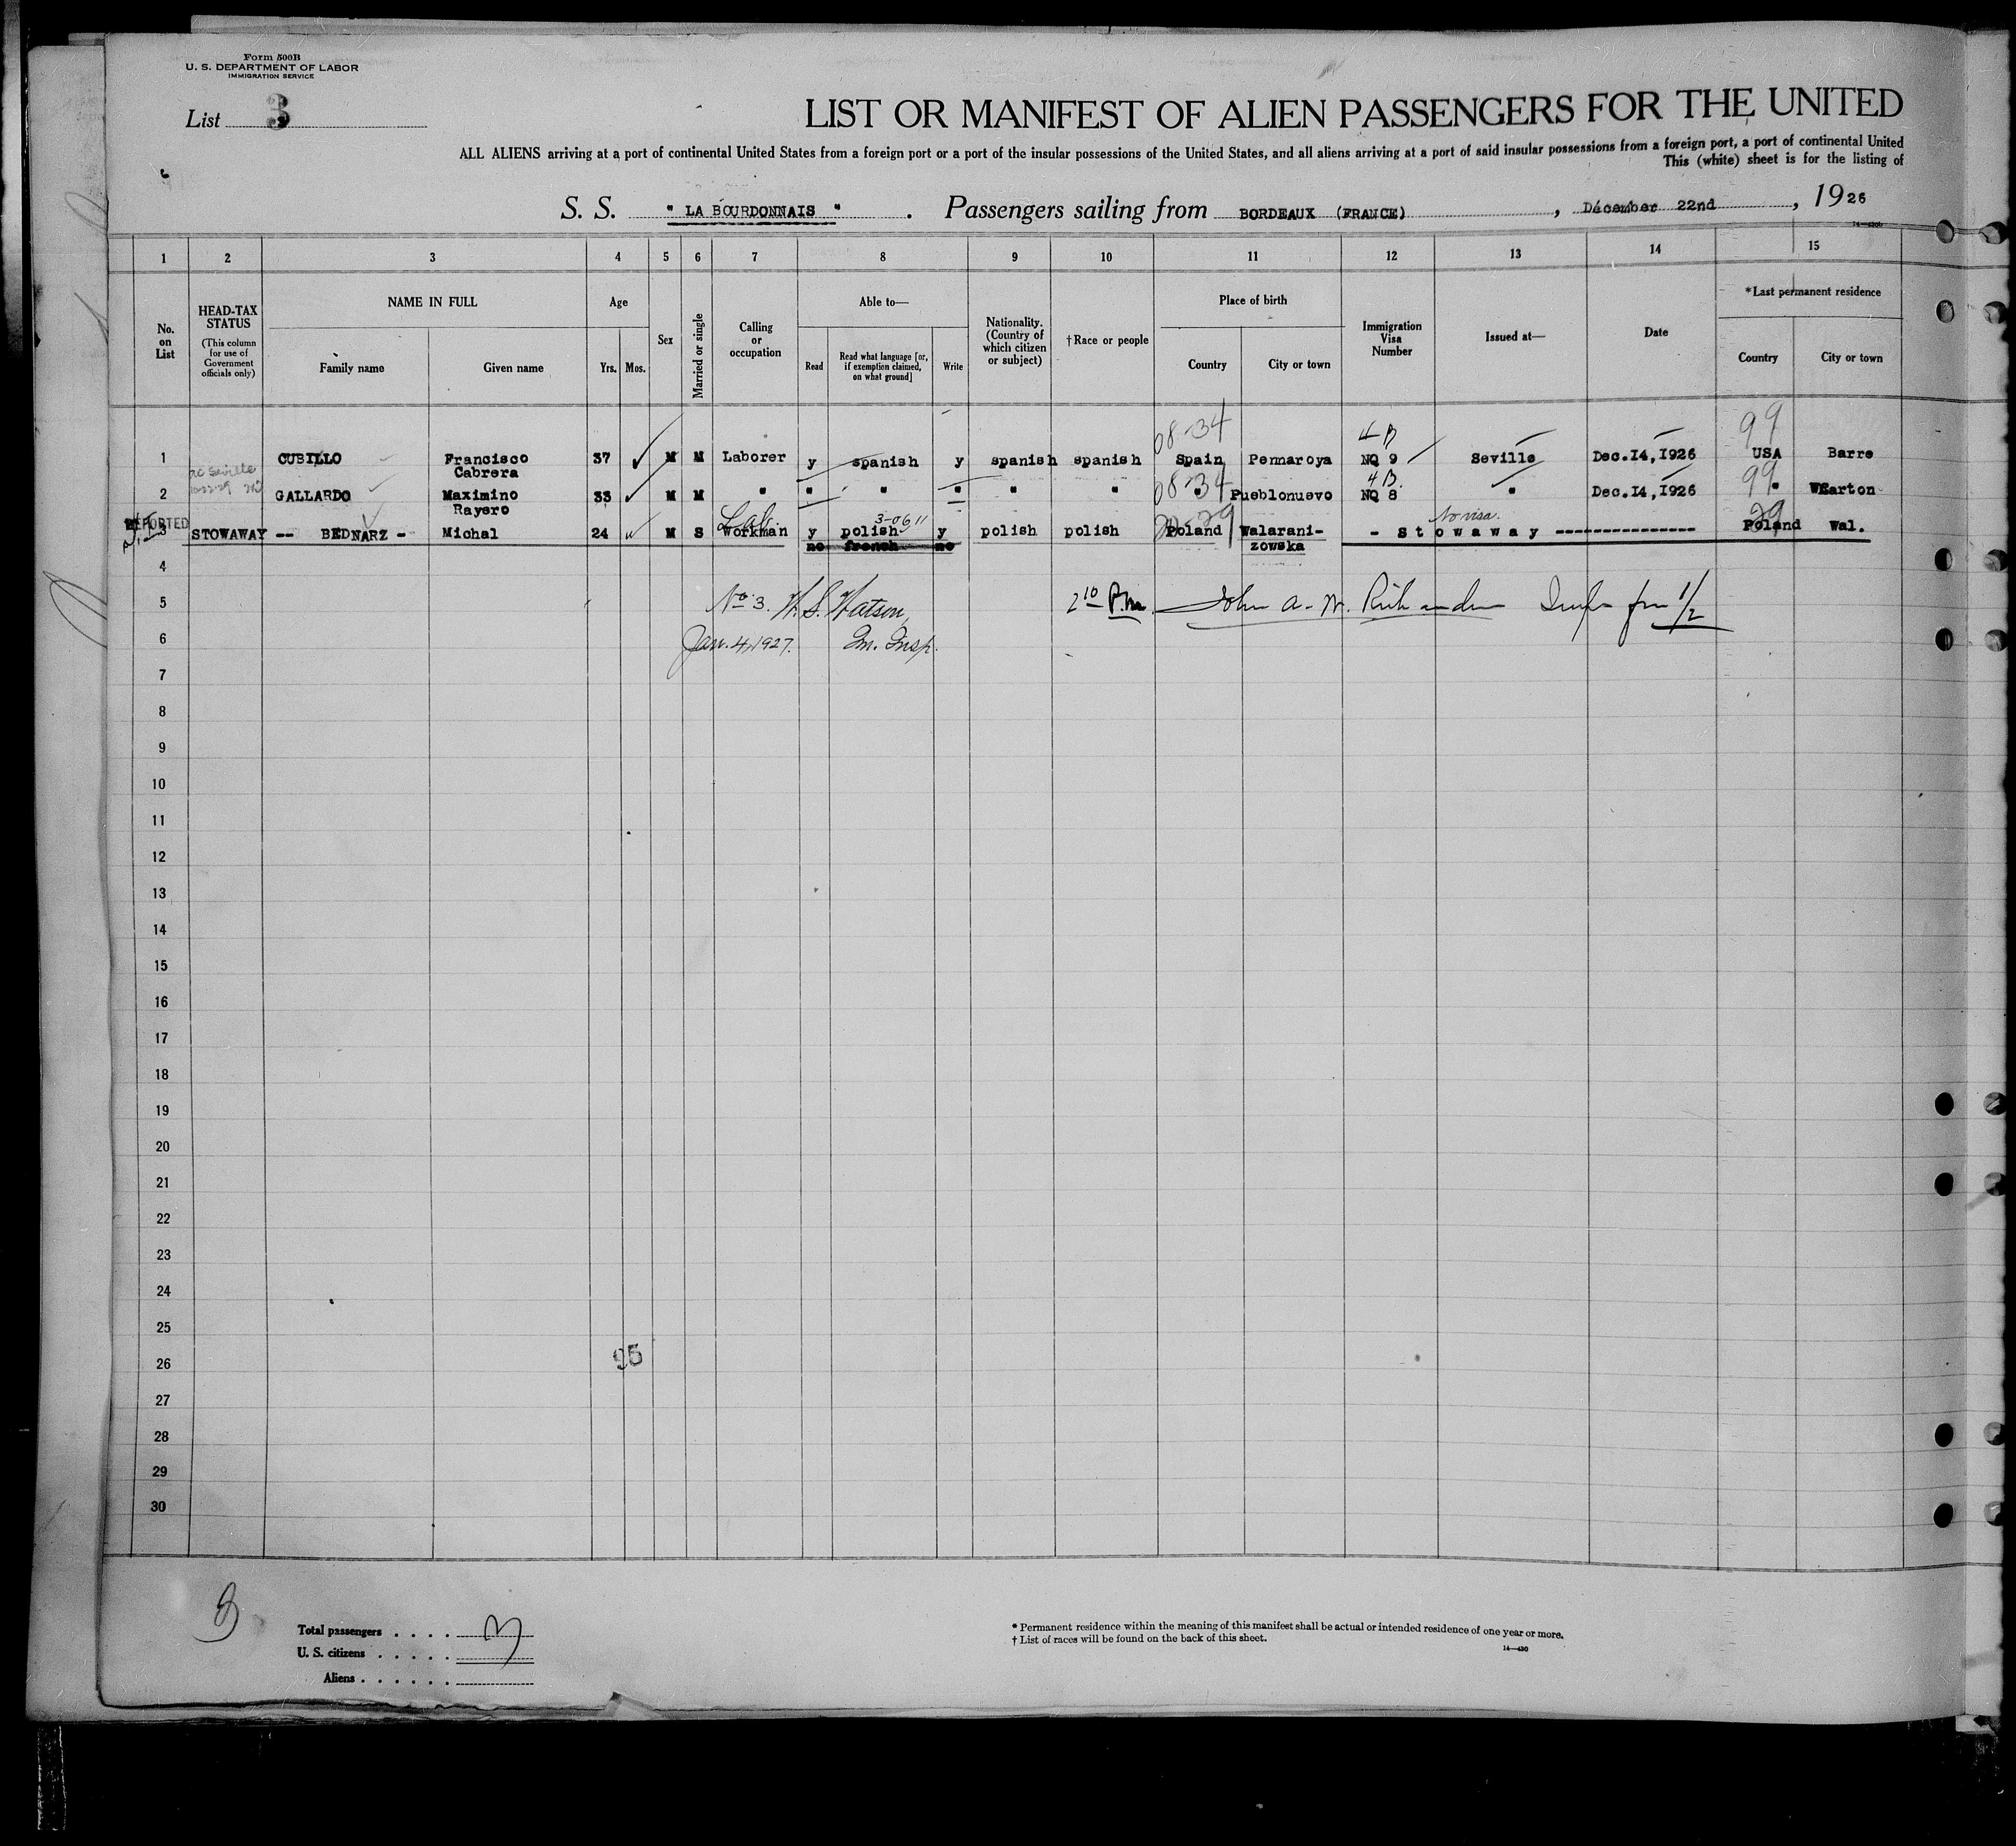 Form 500B
U. S. DEPARTMENT OF LABOR
IMMIGRATION SERVICE
List 3
LIST OR MANIFEST OF ALIEN PASSENGERS FOR THE UNITED
ALL ALIENS arriving at a port of continental United States from a foreign port or a port of the insular possessions of the United States, and all aliens arriving at a port of said insular possessions from a foreign port, a port of continental United
This (white) sheet is for the listing of
S. S. " LA BOURDONNAIS " . Passengers sailing from BORDEAUX (FRANCE) , Décember 22nd , 1926
1 2 3 4 5 6 7 8 9 10 11 12 13 14 15
No. on List
HEAD-TAX STATUS
(This column for use of Government officials only)
NAME IN FULL
Family name Given name
Age
Yrs. Mos.
Sex
Married or single
Calling or occupation
Able to—
Read
Read what language [or, if exemption claimed, on what ground]
Write
Nationality. (Country of which citizen or subject)
†Race or people
Place of birth
Country City or town
Immigration Visa Number
Issued at—
Date
*Last permanent residence
Country City or town
08-34 4 B 99
1 CUBILLO Francisco Cabrera 37 M M Laborer y spanish y spanish spanish Spain Pennaroya NQ 9 Seville Dec.14,1926 USA Barre
08-34 4 B. 99
2 GALLARDO Maximino Rayero 33 M M " " " " " " " Pueblonuevo NQ 8 " Dec.14,1926 " Wharton
Lab. 3-0611 No visa. 29
3 STOWAWAY -- BEDNARZ - Michal 24 M S Workman y polish y polish polish Poland Walarani- - S t o w a w a y --------------- Poland Wal.
no french no zowska
4
5 No 3. W. S. Watson, 2 10 P.m. John A. W. Richardson 1/2
6 Jan. 4, 1927. Im. Insp.
7
8
9
10
11
12
13
14
15
16
17
18
19
20
21
22
23
24
25
26 95
27
28
29
30
Total passengers . . . . 3
U. S. citizens . . . . .
Aliens . . . . . .
* Permanent residence within the meaning of this manifest shall be actual or intended residence of one year or more.
† List of races will be found on the back of this sheet.
14—430